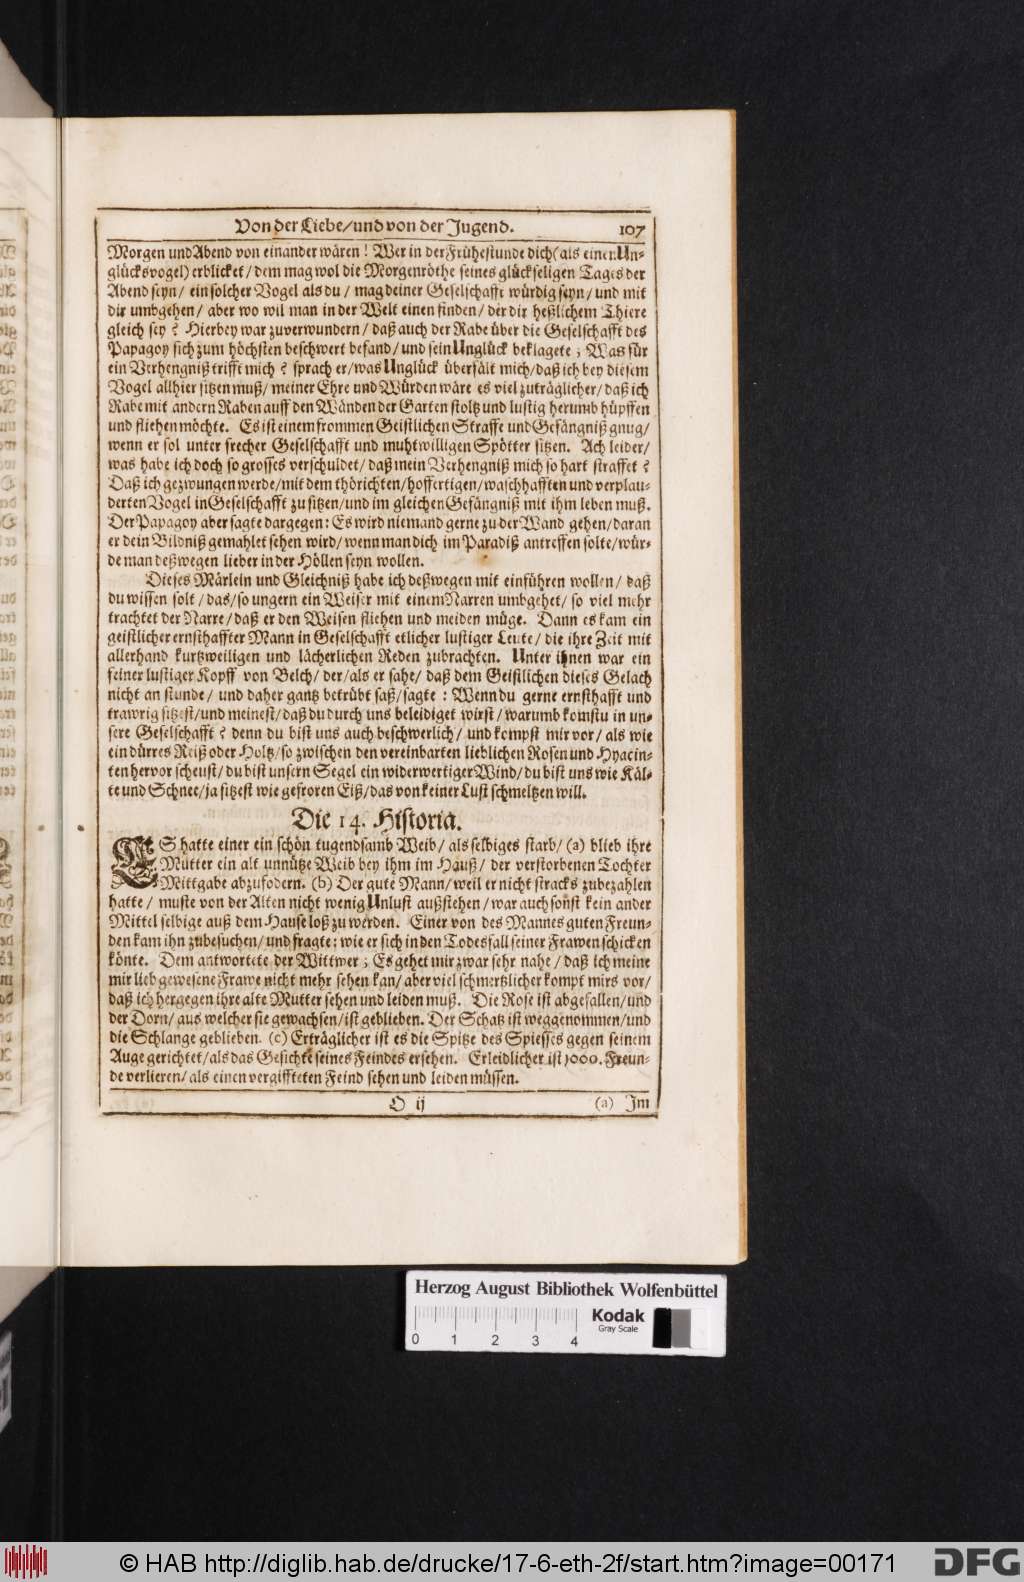 Von der Liebe/ und von der Jugend. 107
Morgen und Abend von einander wären! Wer in der Frühestunde dich (als einen Un-
glücksvogel) erblicket/ dem mag wol die Morgenröthe seines glückseligen Tages der
Abend seyn/ ein solcher Vogel als du/ mag deiner Geselschafft würdig seyn/ und mit
dir umbgehen/ aber wo wil man in der Welt einen finden/ der dir heßlichem Thiere
gleich sey? Hierbey war zuverwundern/ daß auch der Rabe über die Geselschafft des
Papagoy sich zum höchsten beschwert befand/ und sein Unglück beklagete; Was für
ein Verhengniß trifft mich? sprach er/ was Unglück überfält mich/ daß ich bey diesem
Vogel allhier sitzen muß/ meiner Ehre und Würden wäre es viel zuträglicher/ daß ich
Rabe mit andern Raben auff den Wänden der Garten stoltz und lustig herumb hüpffen
und fliehen möchte. Es ist einem frommen Geistlichen Straffe und Gefängniß gnug/
wenn er sol unter frecher Geselschafft und muhtwilligen Spötter sitzen. Ach leider/
was habe ich doch so grosses verschuldet/ daß mein Verhengniß mich so hart straffet?
Daß ich gezwungen werde/ mit dem thörichten/ hoffertigen/ waschhafften und verplau-
derten Vogel in Geselschafft zu sitzen/ und im gleichen Gefängniß mit ihm leben muß.
Der Papagoy aber sagte dargegen: Es wird niemand gerne zu der Wand gehen/ daran
er dein Bildniß gemahlet sehen wird/ wenn man dich im Paradiß antreffen solte/ wür-
de man deßwegen lieber in der Höllen seyn wollen.
Dieses Märlein und Gleichniß habe ich deßwegen mit einführen wollen/ daß
du wissen solt/ das/ so ungern ein Weiser mit einem Narren umbgehet/ so viel mehr
trachtet der Narre/ daß er den Weisen fliehen und meiden müge. Dann es kam ein
geistlicher ernsthaffter Mann in Geselschafft etlicher lustiger Leute/ die ihre Zeit mit
allerhand kurtzweiligen und lächerlichen Reden zubrachten. Unter ihnen war ein
feiner lustiger Kopff von Belch/ der/ als er sahe/ daß dem Geistlichen dieses Gelach
nicht an stunde/ und daher gantz betrübt saß/ sagte: Wenn du gerne ernsthafft und
trawrig sitzest/ und meinest/ daß du durch uns beleidiget wirst/ warumb komstu in un-
sere Geselschafft? denn du bist uns auch beschwerlich/ und kompst mir vor/ als wie
ein dürres Reiß oder Holtz/ so zwischen den vereinbarten lieblichen Rosen und Hyacin-
ten hervor scheust/ du bist unsern Segel ein widerwertiger Wind/ du bist uns wie Käl-
te und Schnee/ ja sitzest wie gefroren Eiß/ das von keiner Lust schmeltzen will.
Die 14. Historia.
ES hatte einer ein schön tugendsamb Weib/ als selbiges starb/ (a) blieb ihre
Mutter ein alt unnütze Weib bey ihm im Hauß/ der verstorbenen Tochter
Mittgabe abzufodern. (b) Der gute Mann/ weil er nicht stracks zubezahlen
hatte/ muste von der Alten nicht wenig Unlust außstehen/ war auch sonst kein ander
Mittel selbige auß dem Hause loß zu werden. Einer von des Mannes guten Freun-
den kam ihn zubesuchen/ und fragte: wie er sich in den Todesfall seiner Frawen schicken
könte. Dem antwortete der Wittwer; Es gehet mir zwar sehr nahe/ daß ich meine
mir lieb gewesene Frawe nicht mehr sehen kan/ aber viel schmertzlicher kompt mirs vor/
daß ich hergegen ihre alte Mutter sehen und leiden muß. Die Rose ist abgefallen/ und
der Dorn/ aus welcher sie gewachsen/ ist geblieben. Der Schatz ist weggenommen/ und
die Schlange geblieben. (c) Erträglicher ist es die Spitze des Spiesses gegen seinem
Auge gerichtet/ als das Gesichte seines Feindes ersehen. Erleidlicher ist 1000. Freun-
de verlieren/ als einen vergiffteten Feind sehen und leiden müssen.
O ij (a) Im
Herzog August Bibliothek Wolfenbüttel
Kodak
Gray Scale
0 1 2 3 4
© HAB http://diglib.hab.de/drucke/17-6-eth-2f/start.htm?image=00171
DFG